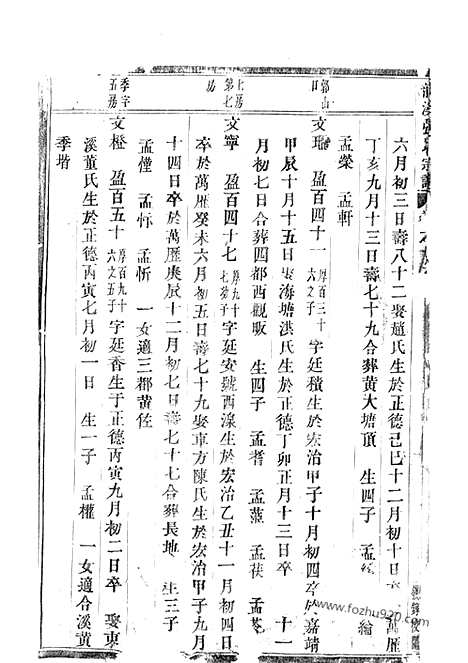 六月初三日壽八十二娶趙氏生於正德己巳十二月初十日卒 萬曆
丁亥九月十三日壽七十九合葬黄大塘頂 生四子 孟 綸
孟榮 孟軒
文瑞 盈百四十一 厚百三十六之子 字廷積生於宏治甲子十月初四卒於嘉靖
甲辰十月十五日娶海塘洪氏生於正德丁卯正月十三日卒 十一
月初七日合葬四都西觀畈 生四子 孟
文寧 盈百四十七 厚九十七幼子 字廷安號西溪生於宏治乙丑十一月初四日
卒於萬曆癸未六月初五日壽七十九娶車方陳氏生於宏治甲子九月
十四日卒於萬曆庚辰十二月初七日壽七十七合葬長地 生三子
孟僅 孟忻 一女適三都黄
文橙 盈百五十 厚百九十六之五子 字廷香生于正德丙寅九月初二日卒 娶東
溪黄氏生於正德丙寅七月初一日 生一子 孟權 一女適合溪黄
季堦
上房第七房
季字五房
www.fozhu920.com